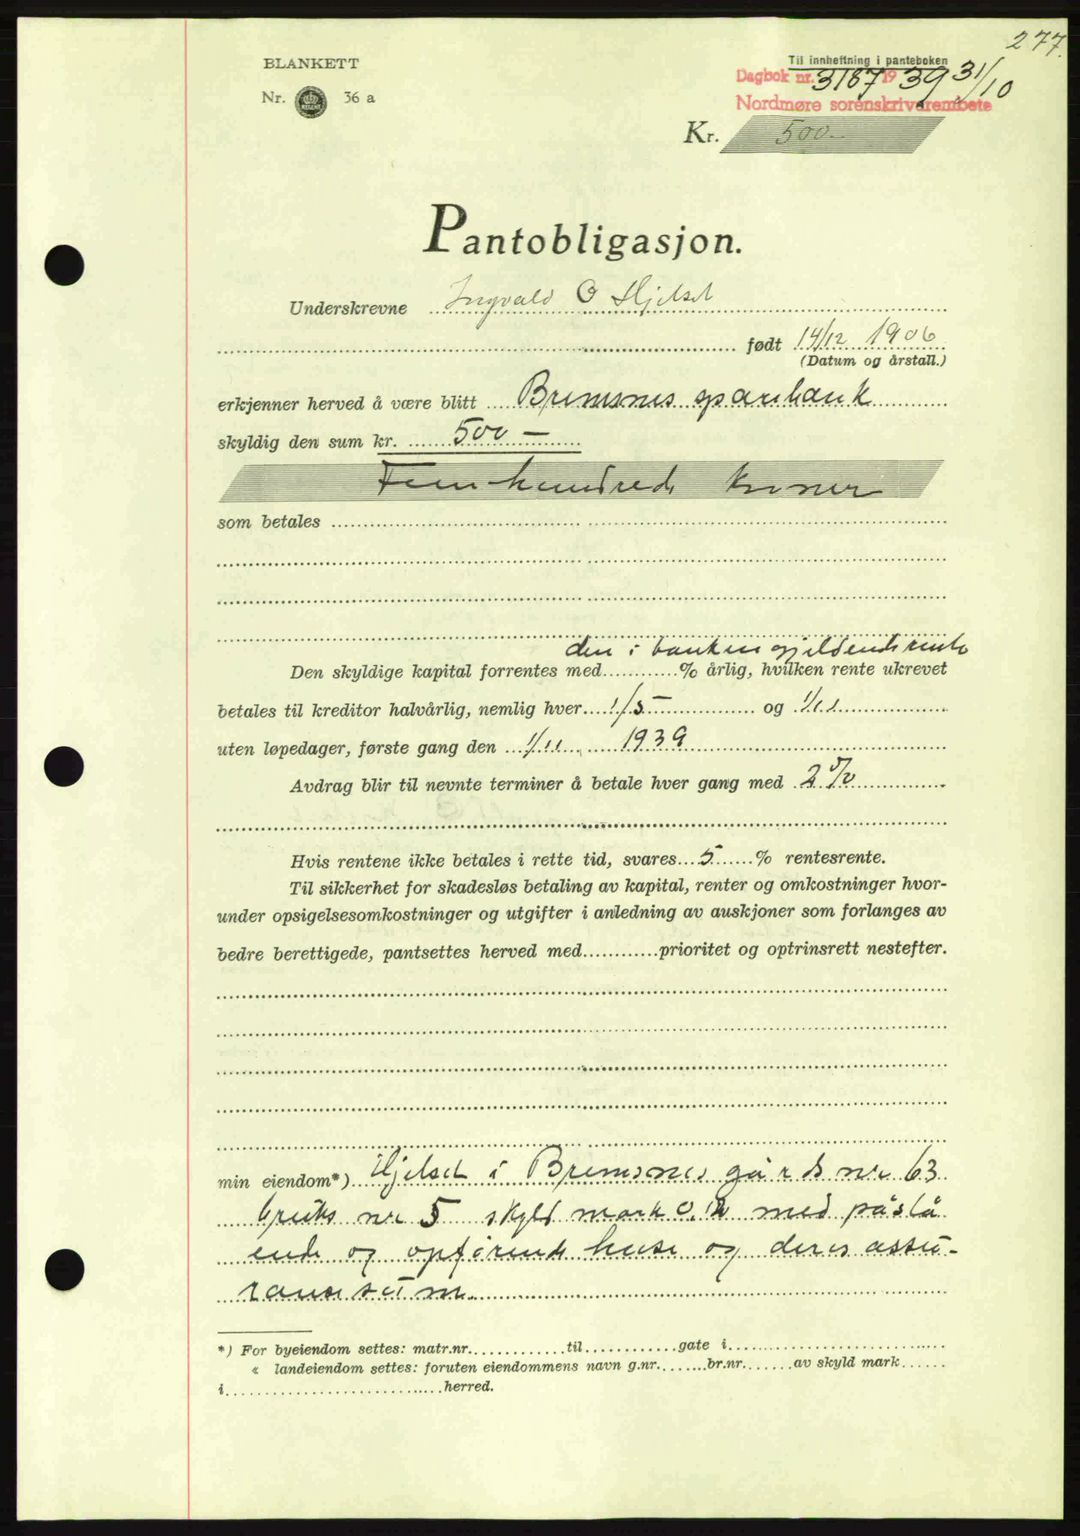 277.
BLANKETT
Til innheftning i panteboken
Dagbok nr. 3187 1939 31/10
Nr. 36 a
Nordmøre sorenskriverembete
Kr. 500-
Pantobligasjon.
Underskrevne Ingvald O Hjelset
født 14/12 1906
(Datum og årstall.)
erkjenner herved å være blitt Bremsnes sparebank
skyldig den sum kr. 500 —
Fem hundrede kroner
som betales
den i banken gjeldende rente
Den skyldige kapital forrentes med % årlig, hvilken rente ukrevet
betales til kreditor halvårlig, nemlig hver 1/5 — og 1/11
uten løpedager, første gang den 1/11 1939
Avdrag blir til nevnte terminer å betale hver gang med 2 %
Hvis rentene ikke betales i rette tid, svares 5 % rentesrente.
Til sikkerhet for skadesløs betaling av kapital, renter og omkostninger hvor-
under opsigelsesomkostninger og utgifter i anledning av auskjoner som forlanges av
bedre berettigede, pantsettes herved med prioritet og optrinsrett nestefter.
min eiendom*) Hjelset i Bremsnes gårds nr 63
bruks nr 5 skyld mark 0,12 med påstå
ende og opførende huse og deres assu-
ranse sum.
*) For byeiendom settes: matr.nr. til gate i
« landeiendom settes: foruten eiendommens navn g.nr. br.nr. av skyld mark
i herred.